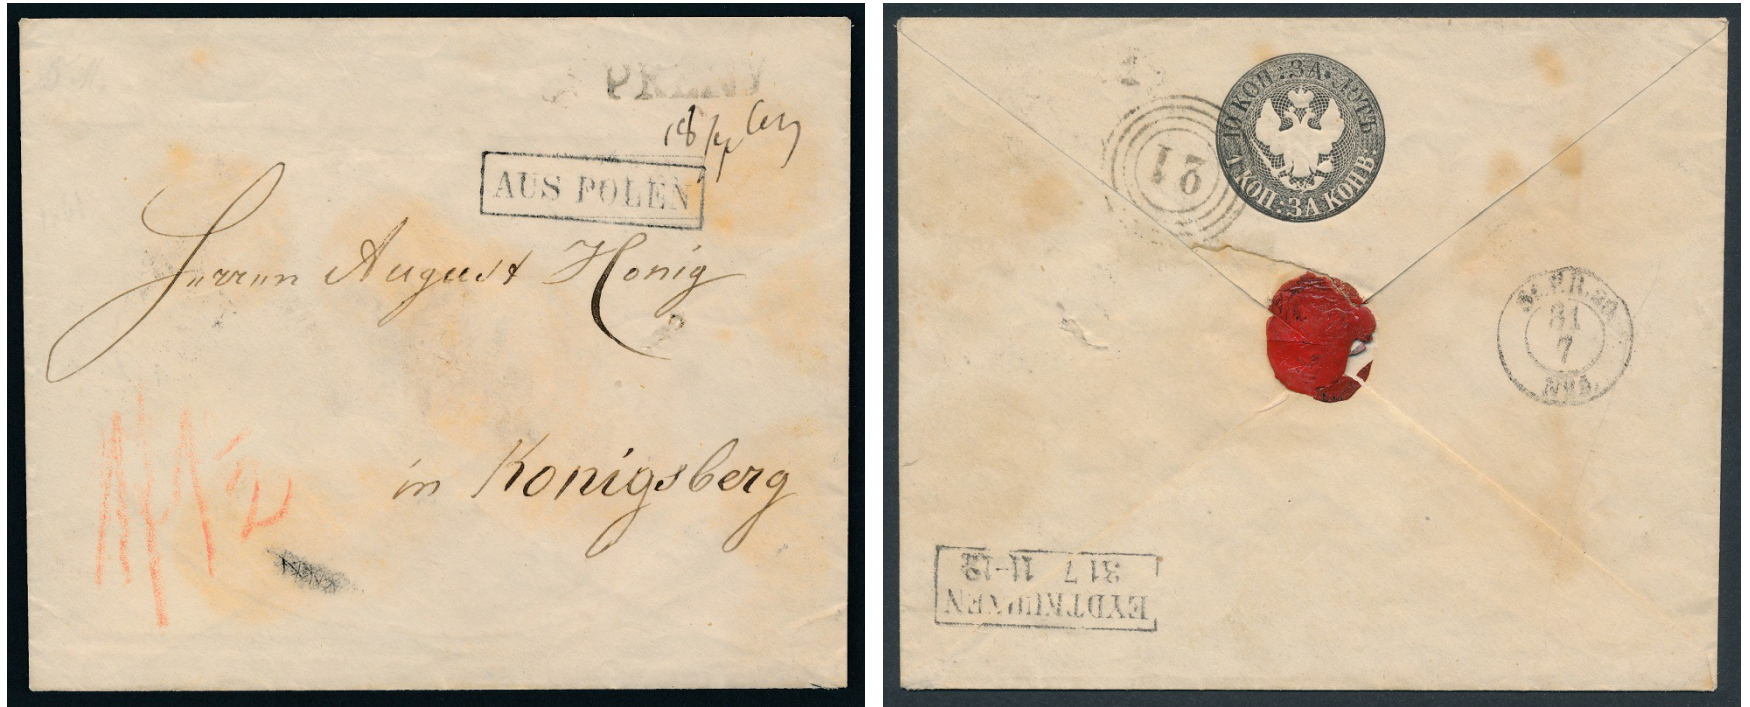 AUS POLEN
Herren August Honig
in Konigsberg
10 КОП: ЗА ЛОТЪ
1 КОП: ЗА КОНВ:
21
31
7
EYDTKUHNEN
31 7 11-12